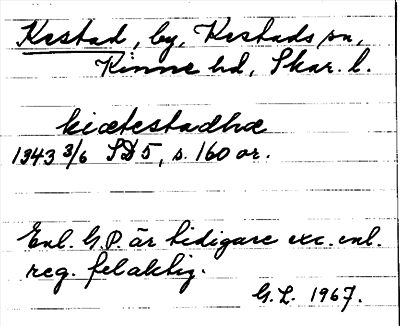 Kestad, by, Kestads sn,
Kinne hd, Skar. l.
kiætestadhæ
1343 3/6 SD 5, s. 160 or.
Enl. G.P. är tidigare exc. enl.
reg. felaktig.
G.L. 1967.